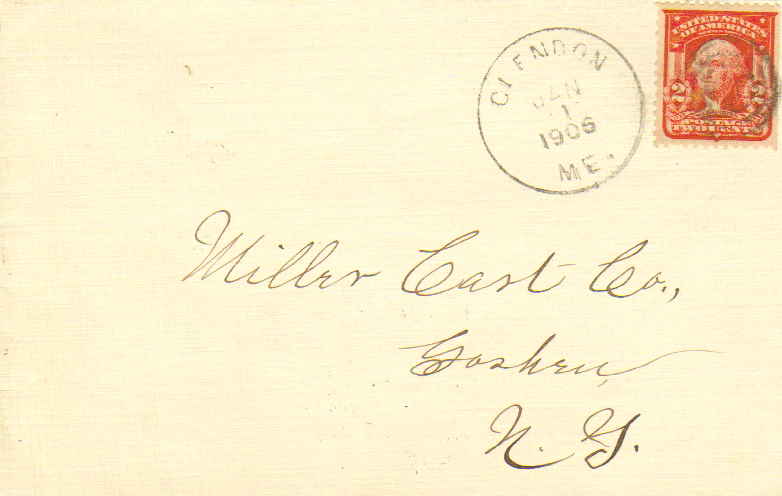 CLENDON
JAN
1
1906
ME.
UNITED STATES
OF AMERICA
2 2
POSTAGE
TWO CENTS
Miller Cart Co.,
Goshen,
N. Y.